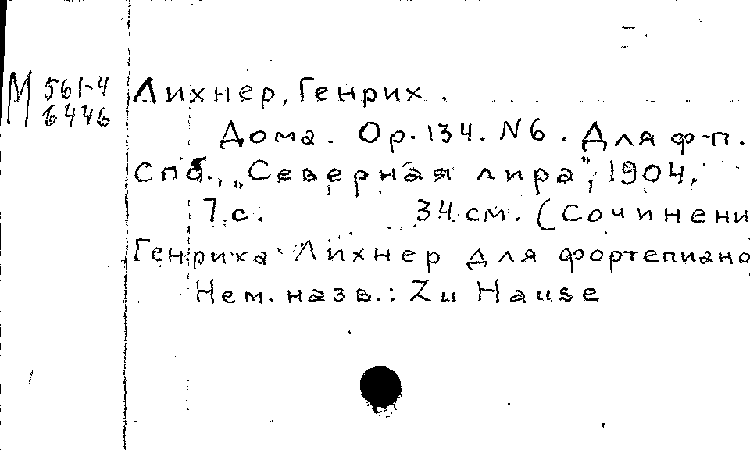 М 561-4
6446
Лихнер, Генрих.
Дома. Op. 134. N6. Для ф-п.
Спб., „Северная лира", 1904.
7 с. 34 см. (Сочинени
Генриха Лихнер для фортепиано
Нем. назв.: Zu Hause